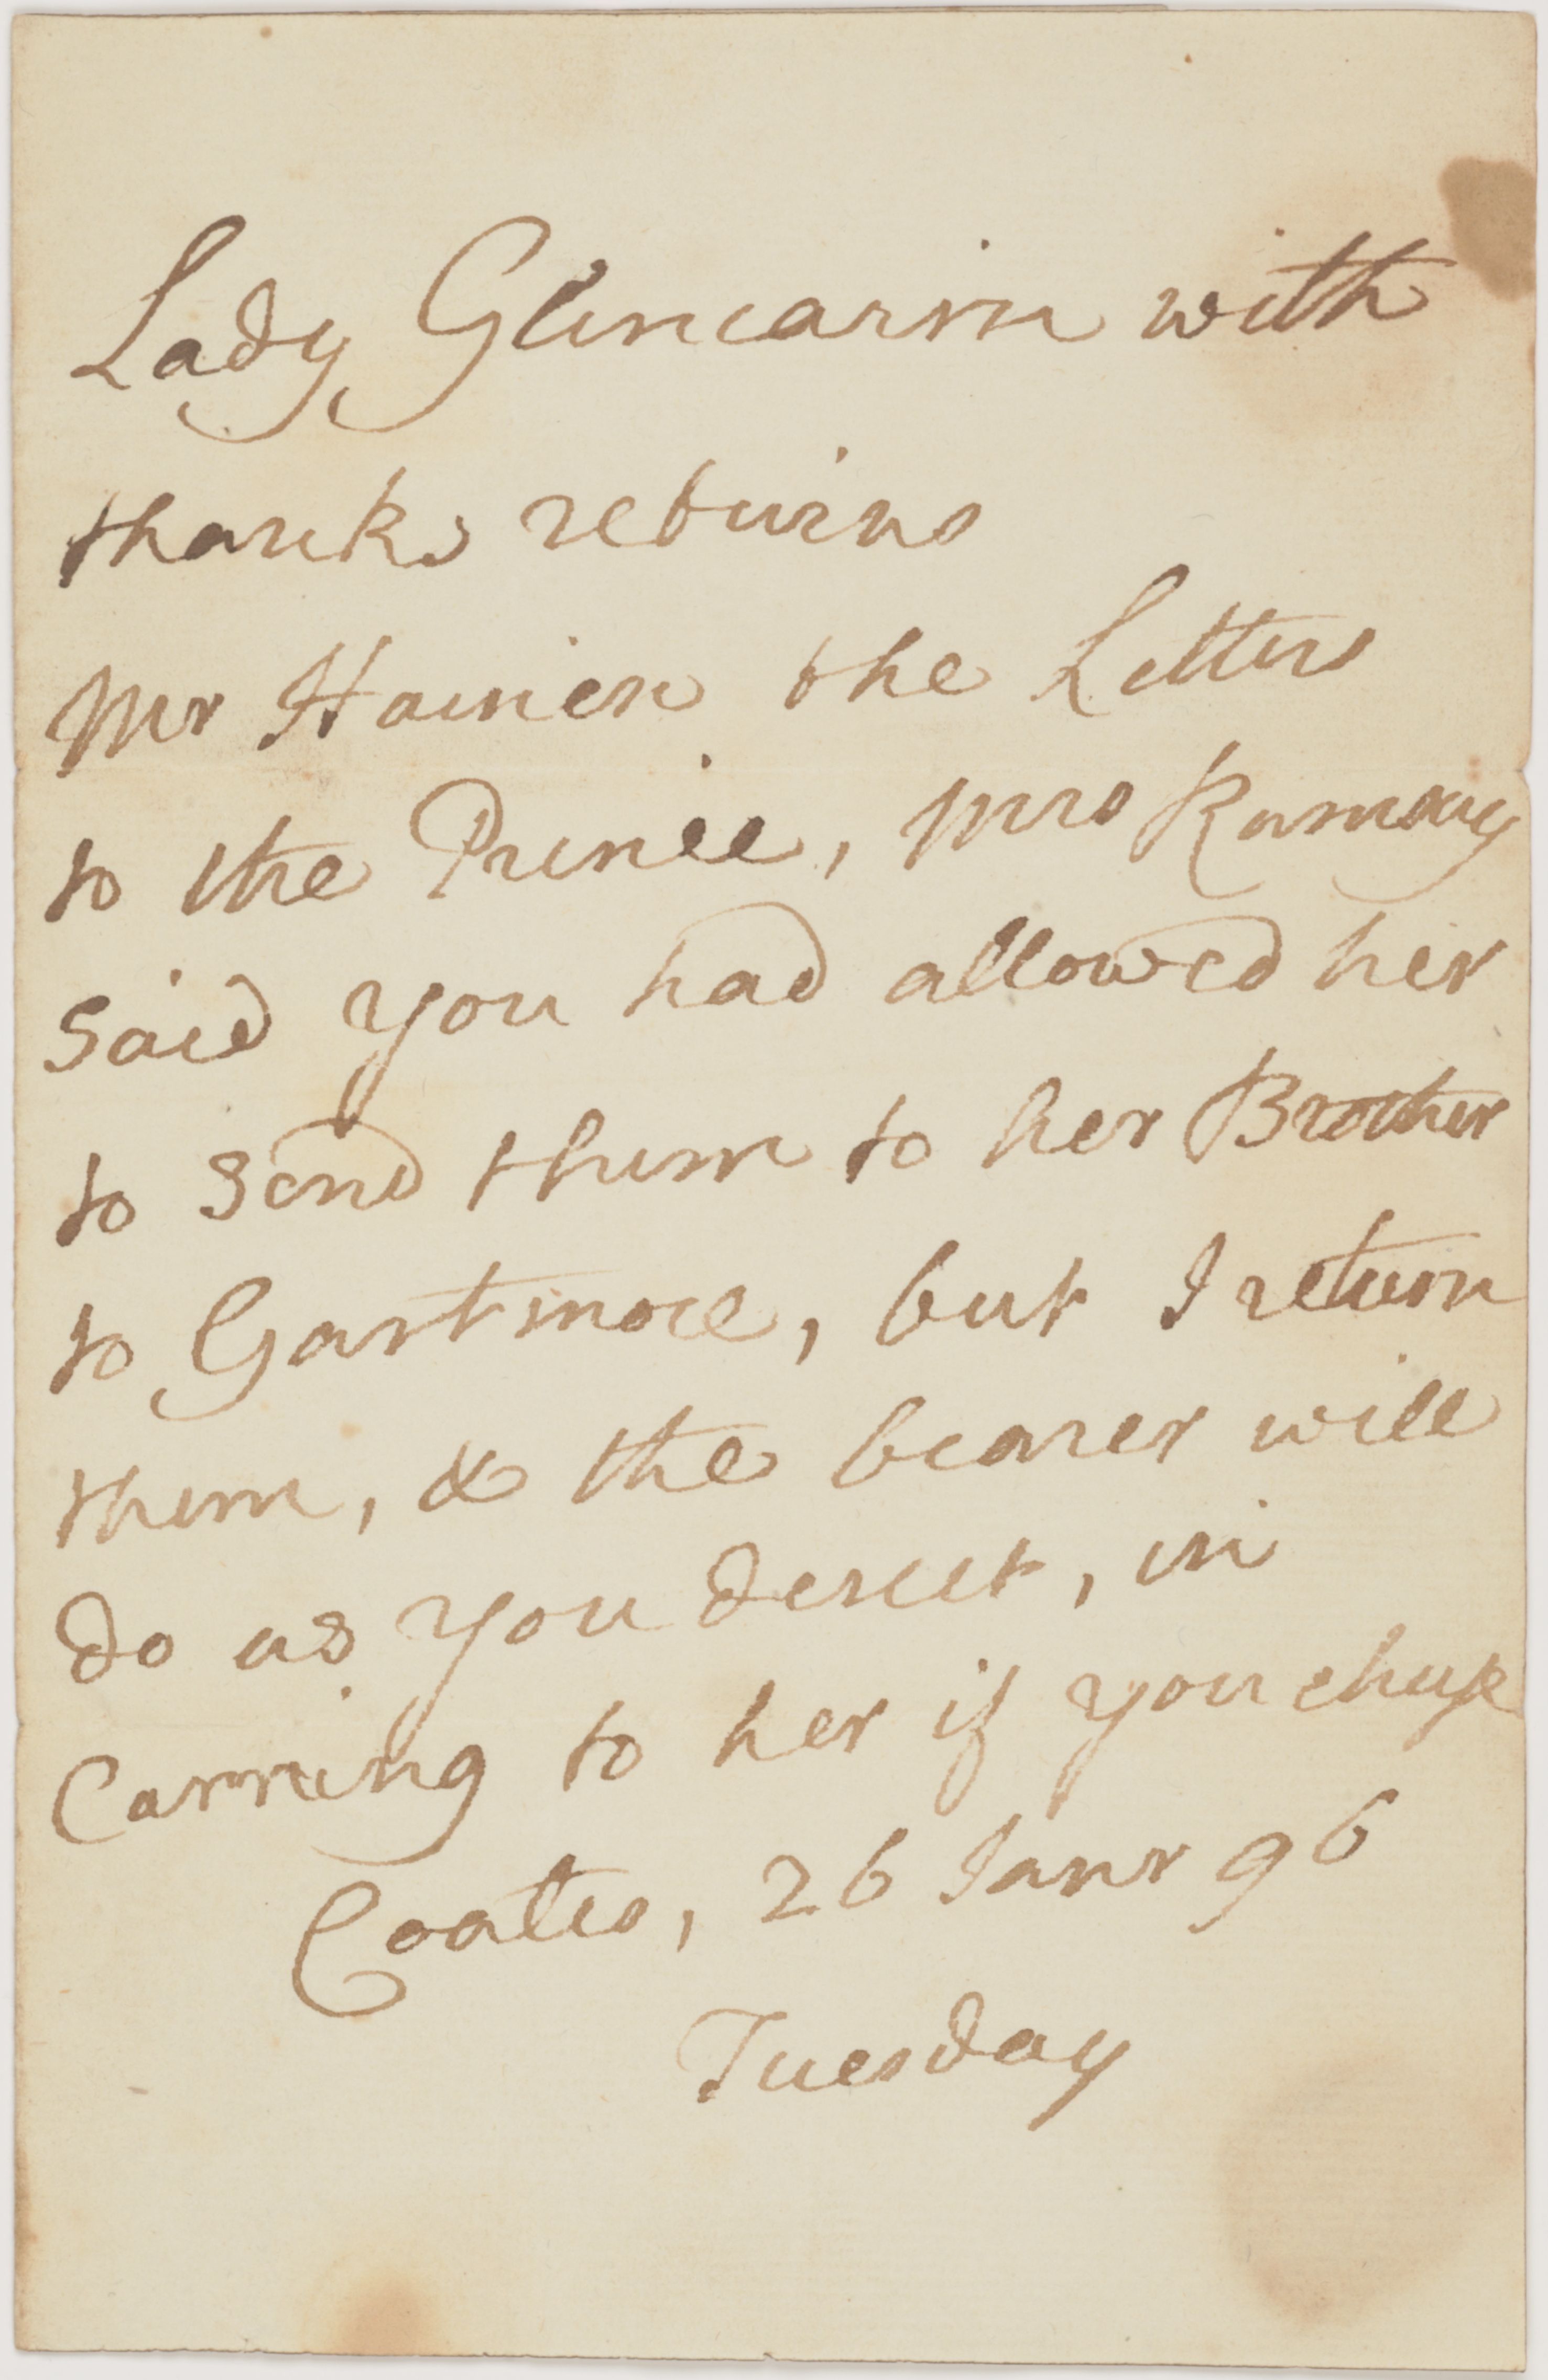 Lady Glencairn with
thanks returns
Mr Hamien the Letters
to the Prince, Mrs Ramsay
said you had allowed her
to send them to her Brother
to Gartmore, but I return
them, & the bearer will
do as you derect, in
Carrieing to her if you chuse
Coates, 26 Janr 96
Tuesday